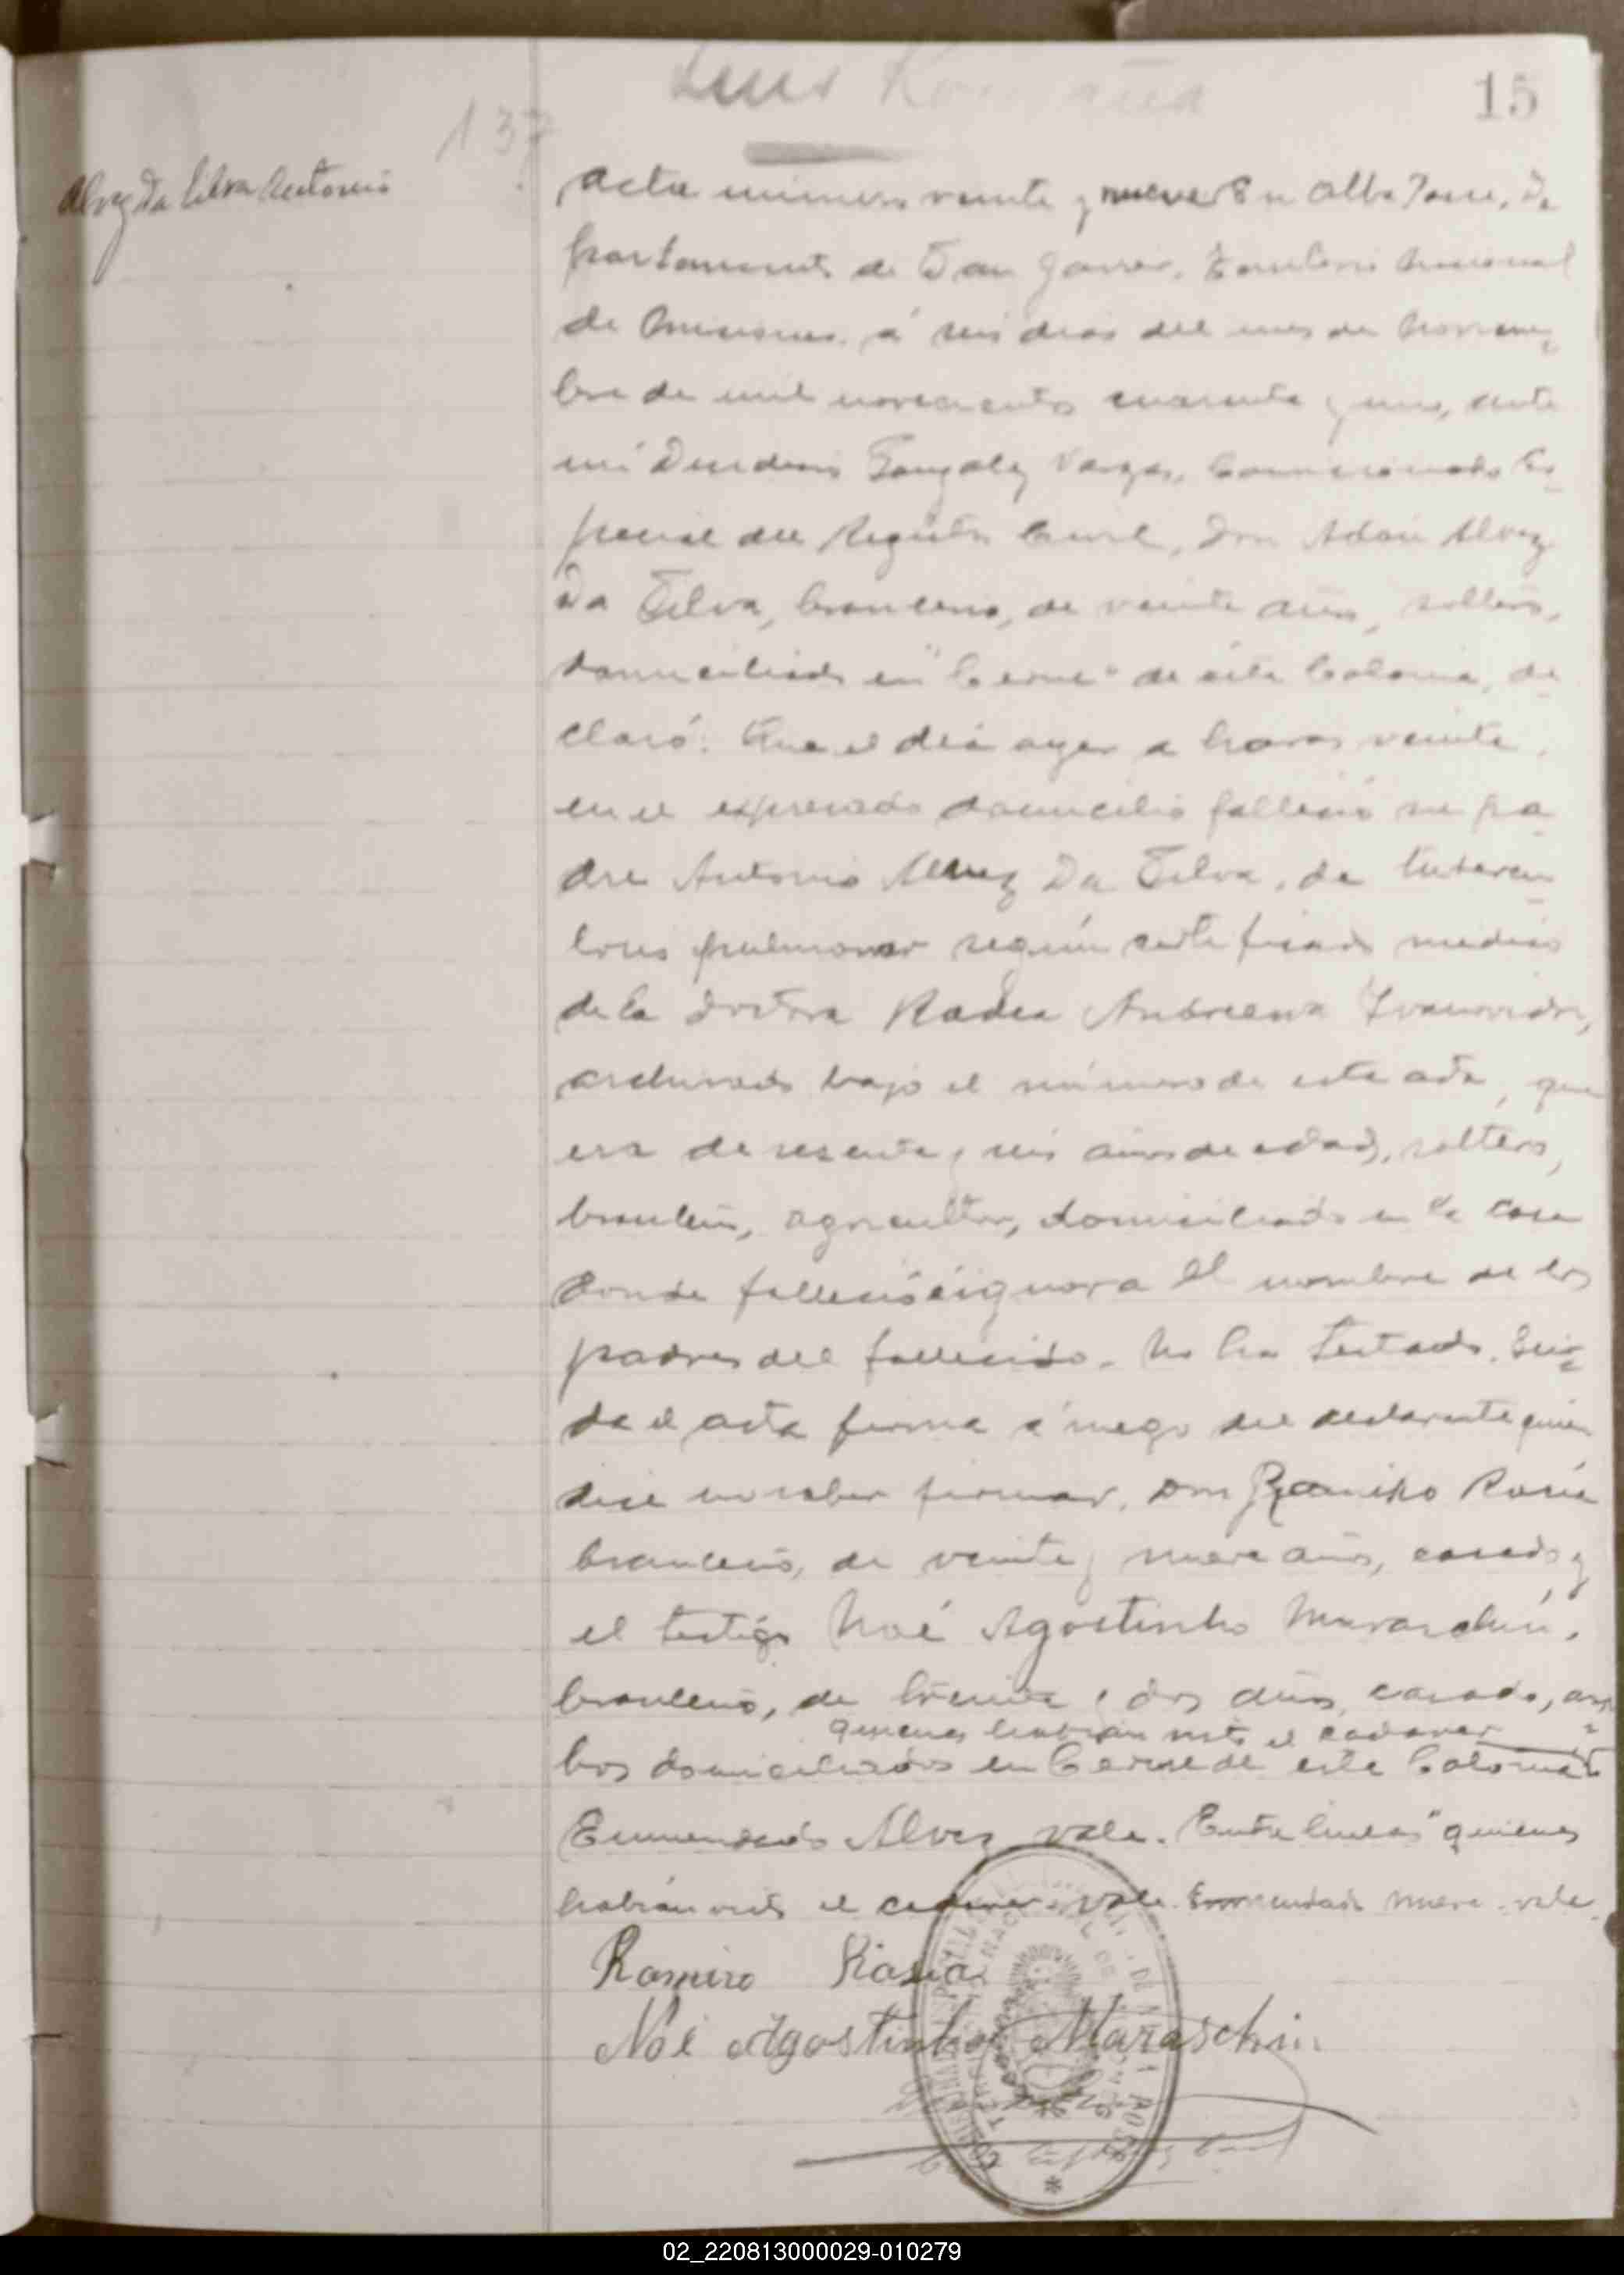 Luis
15
137
Alvez Da Silva Antonio
Acta número veinte y nueve En Alba Posse, De
partamento de San Javier, Territorio Nacional
de Misiones, á seis dias del mes de Noviem
bre de mil novecientos cuarenta y uno, ante
mi Gonzalez Vargas, Comisionado Es
pecial del Registro Civil, Don Adán Alvez
Da Silva, brasileno, de veinte años, soltero,
domiciliado en de ésta Colonia, de
claró: Que el dia ayer a horas veinte
en el expresado domicilio falleció su pa
dre Antonio Alvez Da Silva, de tubercu
losis pulmonar según certificado medico
de la doctora Radea
archivado bajo el número de esta acta, que
era de sesenta y seis años de edad, soltero,
brasileño, agricultor, domiciliado en la casa
donde falleció é ignora el nombre de los
padres del fallecido. No ha testado. Leí
da el acta firma á ruego del declarante quien
dice no saber firmar, Don Ramiro Rosía
brasileño, de veinte y nueve años, casado y
el testigo Noé Agostinho Maraschin,
brasileño, de treinta y dos años, casado, am
quienes habian visto el cadaver
bos domiciliados en de esta Colonia
Enmendado Alvez vale. Entre lineas "quienes
habian visto el cadaver vale. Enmendado nueve. vale.
Ramiro Rosía
Noé Agostinho Maraschin
02_220813000029-010279